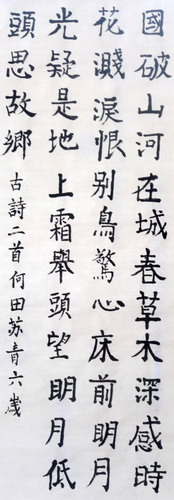 國破山河在城春草木深感時
花濺淚恨别鳥驚心床前明月
光疑是地上霜舉頭望明月低
頭思故鄉
古詩二首何田苏青六歲